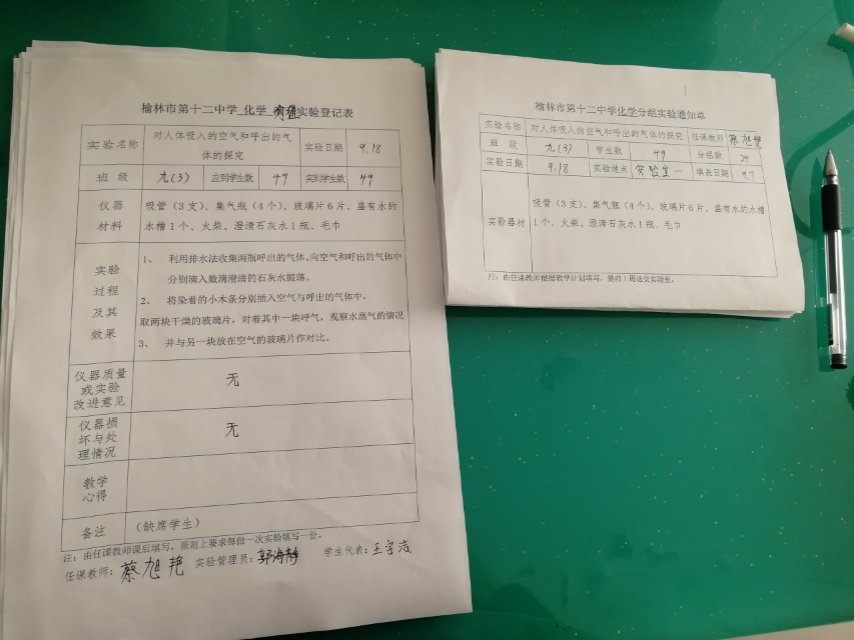 榆林市第十二中学 化学 实验登记表
实验名称 对人体吸入的空气和呼出的气体的探究 实验日期 9.18
班级 九(3) 应到学生数 49 实到学生数 49
仪器材料 吸管(3支)、集气瓶(4个)、玻璃片6片、盛有水的
水槽1个、火柴、澄清石灰水1瓶、毛巾
实验过程及其效果
1、 利用排水法收集两瓶呼出的气体,向空气和呼出的气体中
分别滴入数滴澄清的石灰水振荡。
2、 将染着的小木条分别插入空气与呼出的气体中,
取两块干燥的玻璃片,对着其中一块呼气,观察水蒸气的情况
3、 并与另一块放在空气的玻璃片作对比。
仪器质量或实验改进意见 无
仪器损坏与处理情况 无
教学心得
备注 (缺席学生)
注:由任课教师课后填写,原则上要求每做一次实验填写一份。
任课教师:蔡旭艳 实验管理员:郭海静 学生代表:王宇洁
榆林市第十二中学化学分组实验通知单
实验名称 对人体吸入的空气和呼出的气体的探究 任课教师 蔡旭艳
班级 九(3) 学生数 49 分组数 24
实验日期 9.18 实验地点 实验室一 填表日期 9.7
实验器材 吸管(3支)、集气瓶(4个)、玻璃片6片、盛有水的水槽
1个、火柴、澄清石灰水1瓶、毛巾
注:由任课教师根据教学计划填写,提前1周送交实验室。